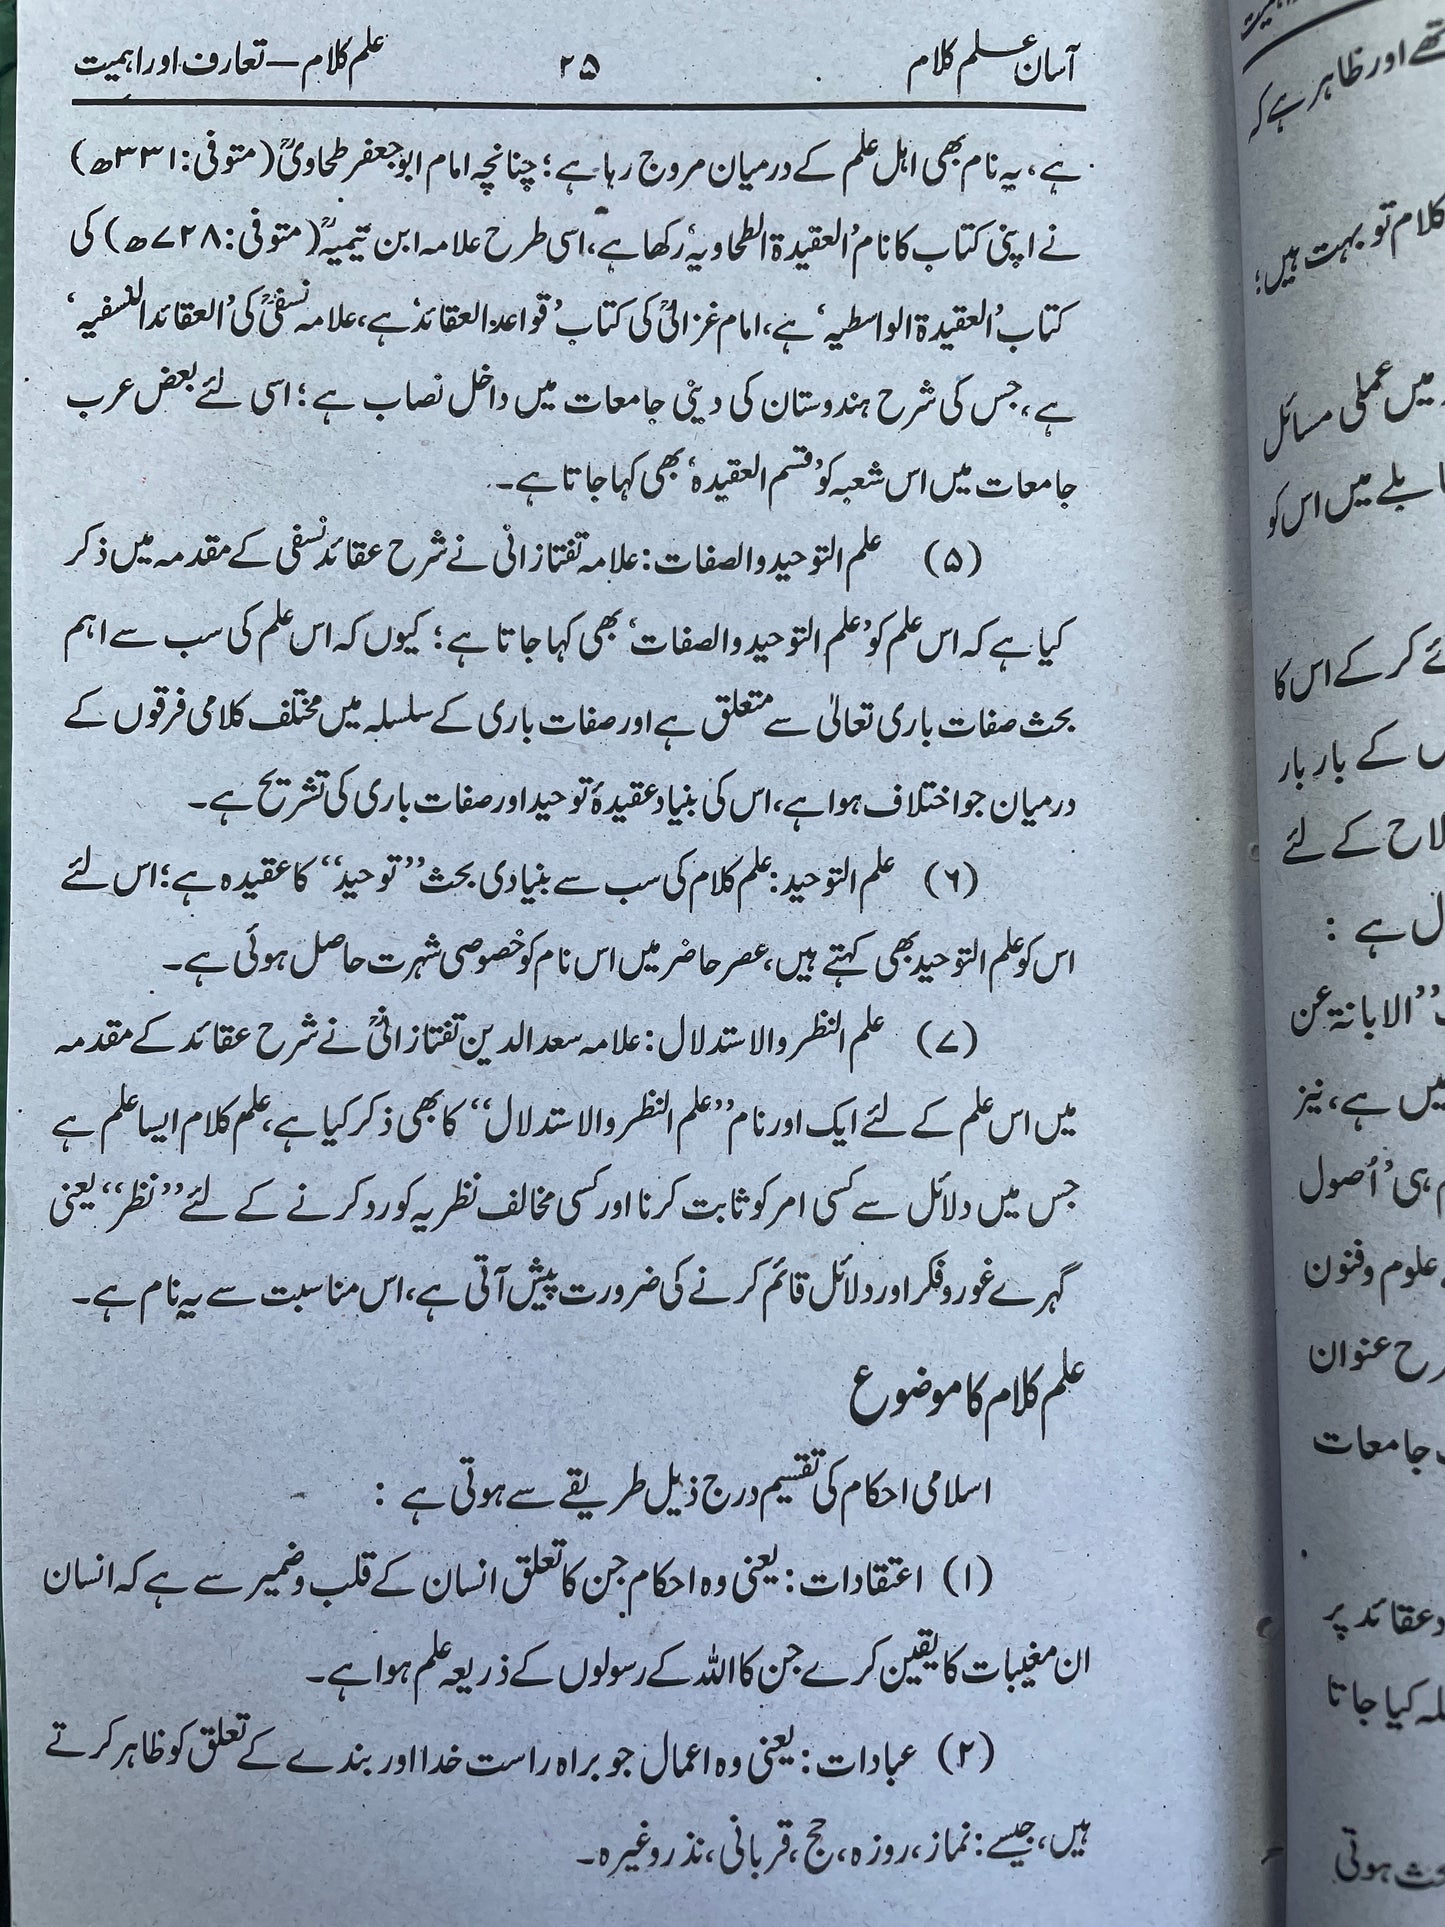 آسان علم کلام ۲۵ علم کلام — تعارف اور اہمیت
ہے، یہ نام بھی اہل علم کے درمیان مروج رہا ہے؛ چنانچہ امام ابو جعفر طحاویؒ (متوفی: ۳۳۱ھ)
نے اپنی کتاب کا نام ’العقیدۃ الطحاویہ‘ رکھا ہے، اسی طرح علامہ ابن تیمیہؒ (متوفی: ۷۲۸ھ) کی
کتاب ’العقیدۃ الواسطیہ‘ ہے، امام غزالیؒ کی کتاب ’قواعد العقائد‘ ہے، علامہ نسفیؒ کی ’العقائد النسفیہ‘
ہے، جس کی شرح ہندوستان کی دینی جامعات میں داخل نصاب ہے؛ اسی لئے بعض عرب
جامعات میں اس شعبہ کو ’قسم العقیدہ‘ بھی کہا جاتا ہے۔
(۵) علم التوحید والصفات: علامہ تفتازانی نے شرح عقائد نسفی کے مقدمہ میں ذکر
کیا ہے کہ اس علم کو ’علم التوحید والصفات‘ بھی کہا جاتا ہے؛ کیوں کہ اس علم کی سب سے اہم
بحث صفات باری تعالیٰ سے متعلق ہے اور صفات باری کے سلسلہ میں مختلف کلامی فرقوں کے
درمیان جو اختلاف ہوا ہے، اس کی بنیاد عقیدۂ توحید اور صفات باری کی تشریح ہے۔
(۶) علم التوحید: علم کلام کی سب سے بنیادی بحث ’’توحید‘‘ کا عقیدہ ہے؛ اس لئے
اس کو علم التوحید بھی کہتے ہیں، عصر حاضر میں اس نام کو خصوصی شہرت حاصل ہوئی ہے۔
(۷) علم النظر والاستدلال: علامہ سعد الدین تفتازانیؒ نے شرح عقائد کے مقدمہ
میں اس علم کے لئے ایک اور نام ’’علم النظر والاستدلال‘‘ کا بھی ذکر کیا ہے، علم کلام ایسا علم ہے
جس میں دلائل سے کسی امر کو ثابت کرنا اور کسی مخالف نظریہ کو رد کرنے کے لئے ’’نظر‘‘ یعنی
گہرے غور و فکر اور دلائل قائم کرنے کی ضرورت پیش آتی ہے، اس مناسبت سے یہ نام ہے۔
علم کلام کا موضوع
اسلامی احکام کی تقسیم درج ذیل طریقے سے ہوتی ہے :
(۱) اعتقادات: یعنی وہ احکام جن کا تعلق انسان کے قلب و ضمیر سے ہے کہ انسان
ان مغیبات کا یقین کرے جن کا اللہ کے رسولوں کے ذریعہ علم ہوا ہے۔
(۲) عبادات: یعنی وہ اعمال جو براہ راست خدا اور بندے کے تعلق کو ظاہر کرتے
ہیں، جیسے: نماز، روزہ، حج، قربانی، نذر وغیرہ۔
تھے اور ظاہر ہے کہ
کلام تو بہت ہیں؛
میں عملی مسائل
بلے میں اس کو
کر کے اس کا
کے بار بار
کے لئے
ہے :
’’الابانۃ عن
ہے، نیز
ہی ’اُصول
علوم و فنون
عنوان
جامعات
عقائد پر
کیا جاتا
ہوتی